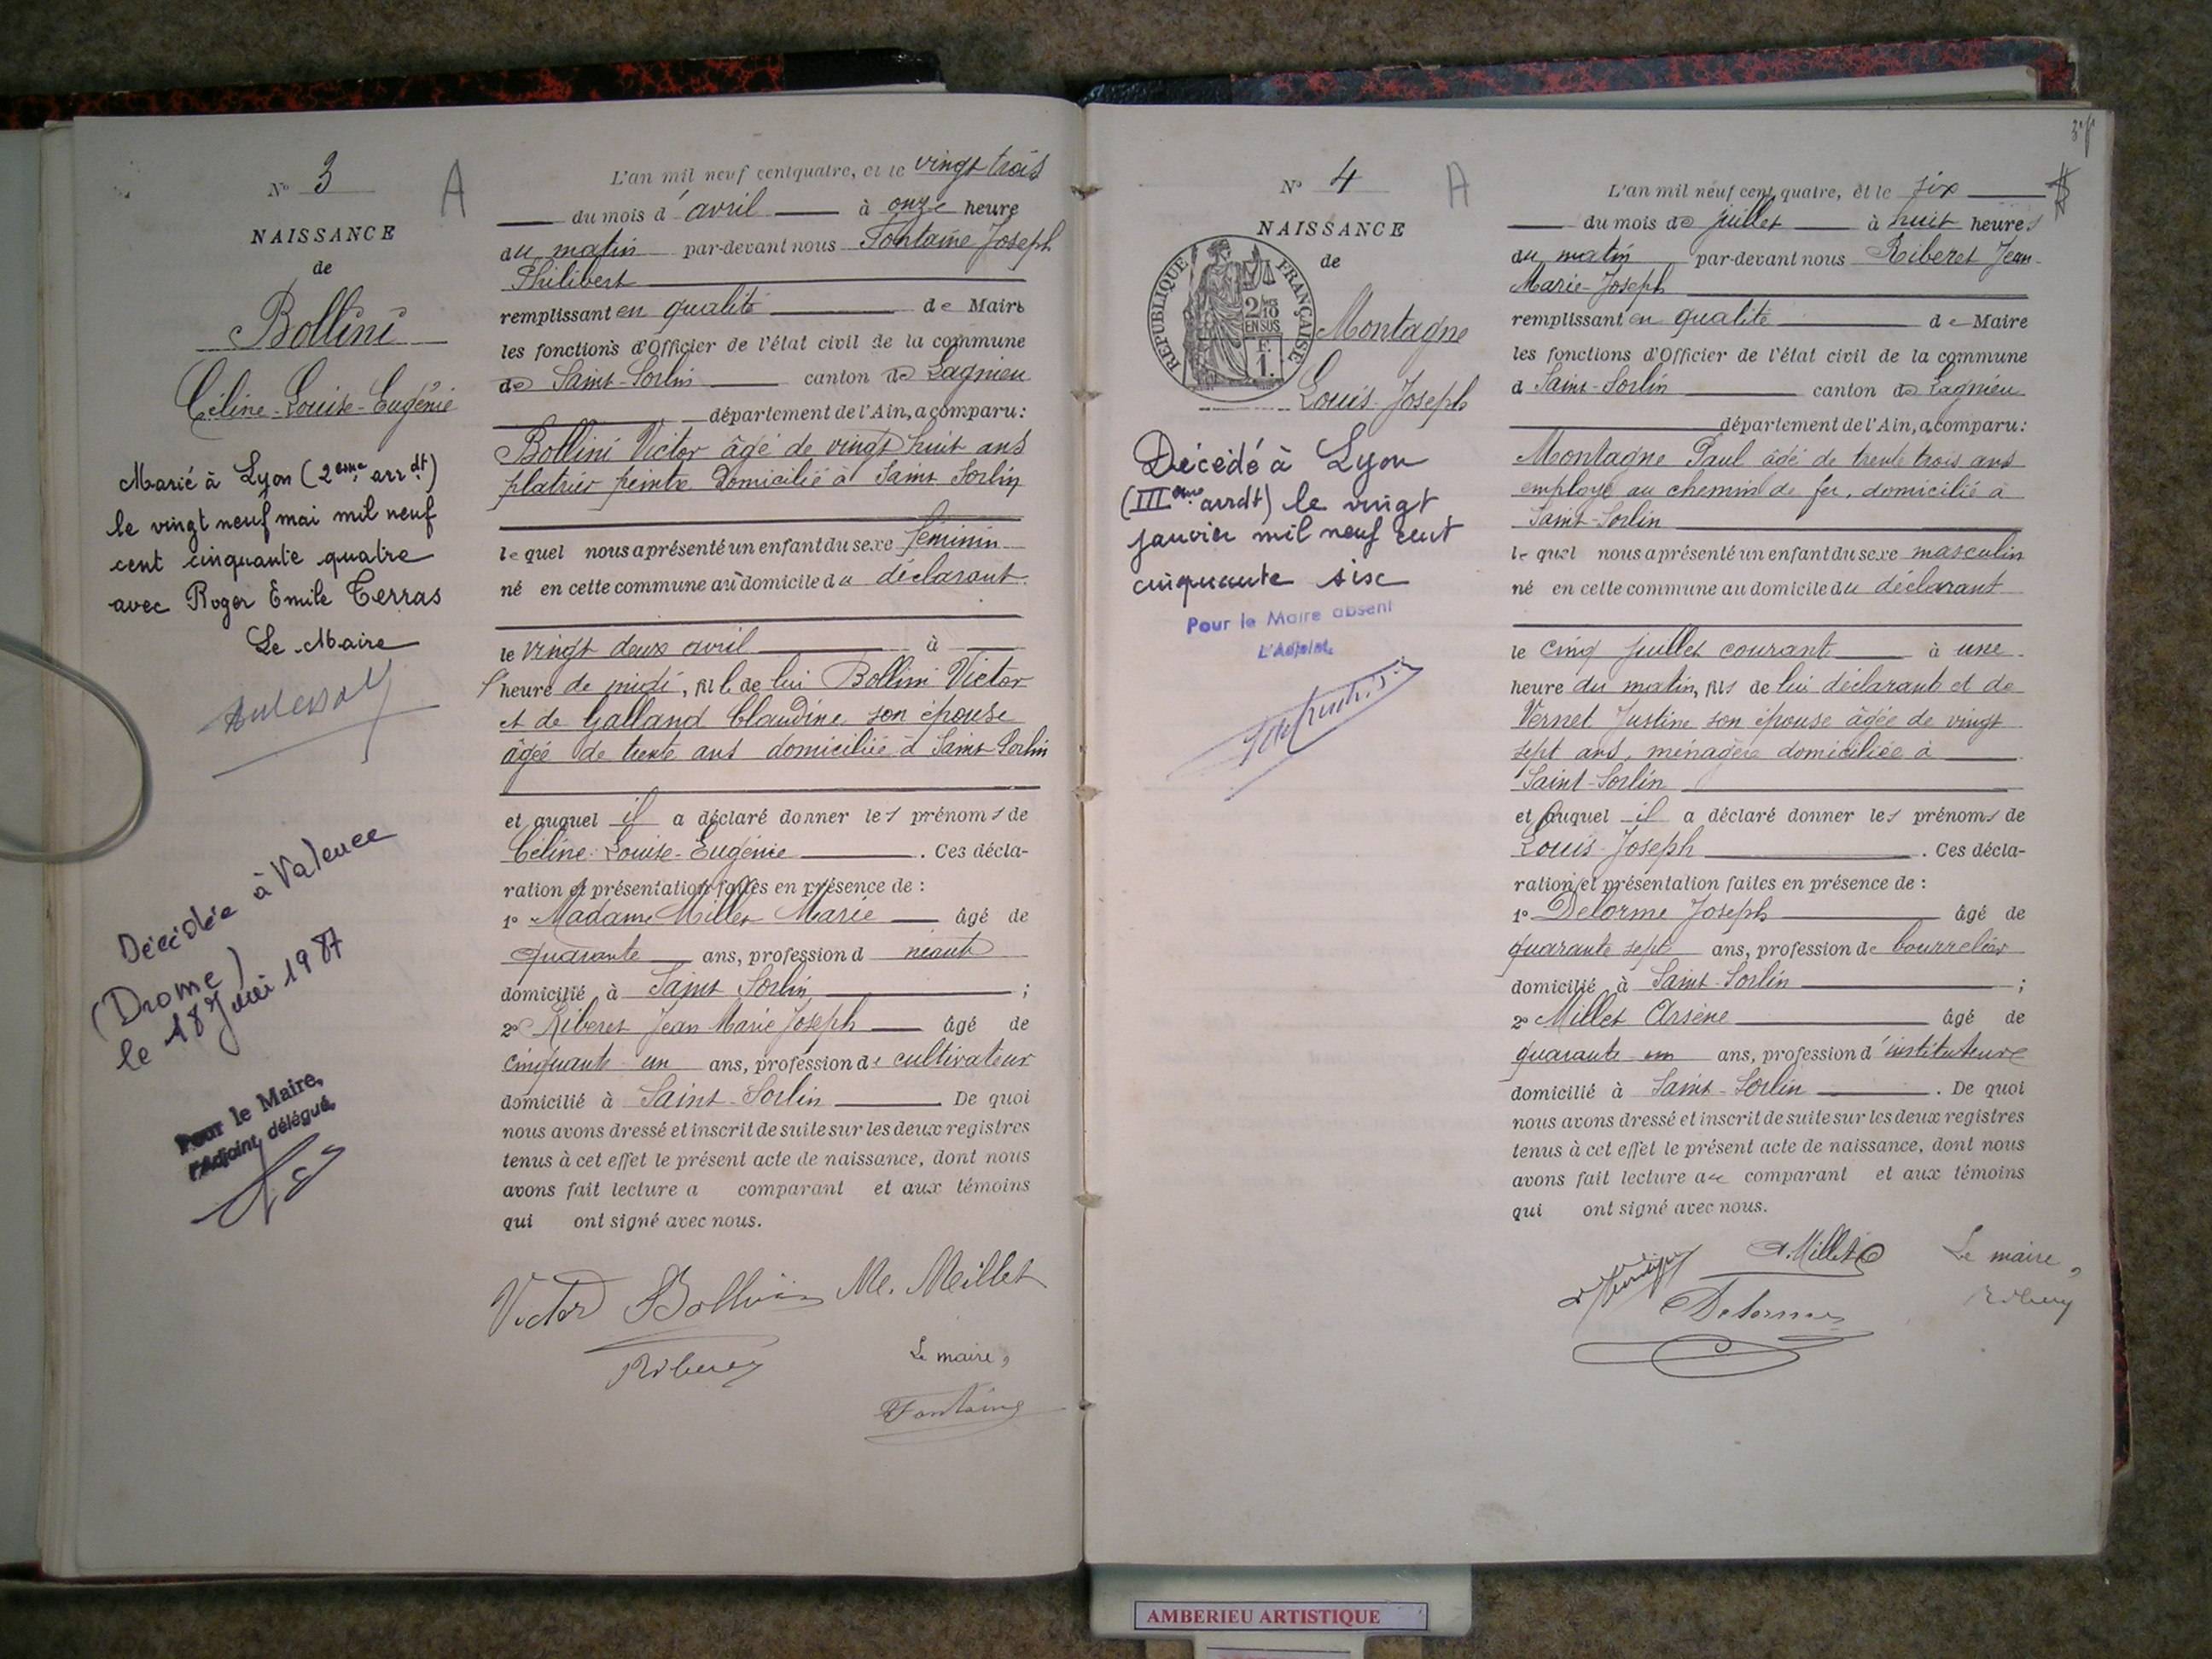 N° 3
A
NAISSANCE
de
Bollini
Céline-Louise-Eugénie
Marié à Lyon (2ème arrdt)
le vingt neuf mai mil neuf
cent cinquante quatre
avec Roger Emile Terras
Le Maire
Décédée à Valence
(Drome)
le 18 Juin 1987
Pour le Maire,
l'Adjoint délégué,
L'an mil neuf cent quatre, et le vingt trois
du mois d'avril à onze heure
du matin par-devant nous Fontaine Joseph
Philibert
remplissant en qualité de Maire
les fonctions d'Officier de l'état civil de la commune
de Saint-Sorlin canton de Lagnieu
département de l'Ain, a comparu:
Bollini Victor âgé de vingt huit ans
platrier peintre domicilié à Saint Sorlin
lequel nous a présenté un enfant du sexe féminin
né en cette commune au domicile du déclarant
le vingt deux avril à
l'heure de midi, fille de lui Bollini Victor
et de Galland Claudine son épouse
âgée de trente ans domiciliée à Saint Sorlin
et auquel il a déclaré donner les prénoms de
Céline-Louise-Eugénie. Ces décla-
ration et présentation faites en présence de:
1° Madame Millet Marie âgé de
quarante ans, profession d néant
domicilié à Saint Sorlin;
2° Riberet Jean Marie Joseph âgé de
cinquante un ans, profession de cultivateur
domicilié à Saint-Sorlin. De quoi
nous avons dressé et inscrit de suite sur les deux registres
tenus à cet effet le présent acte de naissance, dont nous
avons fait lecture a comparant et aux témoins
qui ont signé avec nous.
Victor Bollini M. Millet
Riberet Le maire,
Fontaine
N° 4
A
NAISSANCE
de
REPUBLIQUE FRANÇAISE
2/10
EN SUS
F.
1.
Montagne
Louis-Joseph
Décédé à Lyon
(IIIème arrdt) le vingt
janvier mil neuf cent
cinquante six
Pour le Maire absent
L'Adjoint,
L'an mil neuf cent quatre, et le six
du mois de juillet à huit heures
du matin par-devant nous Riberet Jean-
Marie-Joseph
remplissant en qualité de Maire
les fonctions d'Officier de l'état civil de la commune
d Saint-Sorlin canton de Lagnieu
département de l'Ain, a comparu:
Montagne Paul âgé de trente trois ans
employé au chemin de fer, domicilié à
Saint-Sorlin
lequel nous a présenté un enfant du sexe masculin
né en cette commune au domicile du déclarant
le cinq juillet courant à une
heure du matin, fils de lui déclarant et de
Vernet Justine son épouse âgée de vingt
sept ans, ménagère domiciliée à
Saint-Sorlin
et auquel il a déclaré donner les prénoms de
Louis-Joseph. Ces décla-
ration et présentation faites en présence de:
1° Delorme Joseph âgé de
quarante sept ans, profession de bourrelier
domicilié à Saint-Sorlin;
2° Millet Arsène âgé de
quarante un ans, profession d'instituteur
domicilié à Saint-Sorlin. De quoi
nous avons dressé et inscrit de suite sur les deux registres
tenus à cet effet le présent acte de naissance, dont nous
avons fait lecture au comparant et aux témoins
qui ont signé avec nous.
A. Millet Le maire,
Delorme Riberet
AMBERIEU ARTISTIQUE